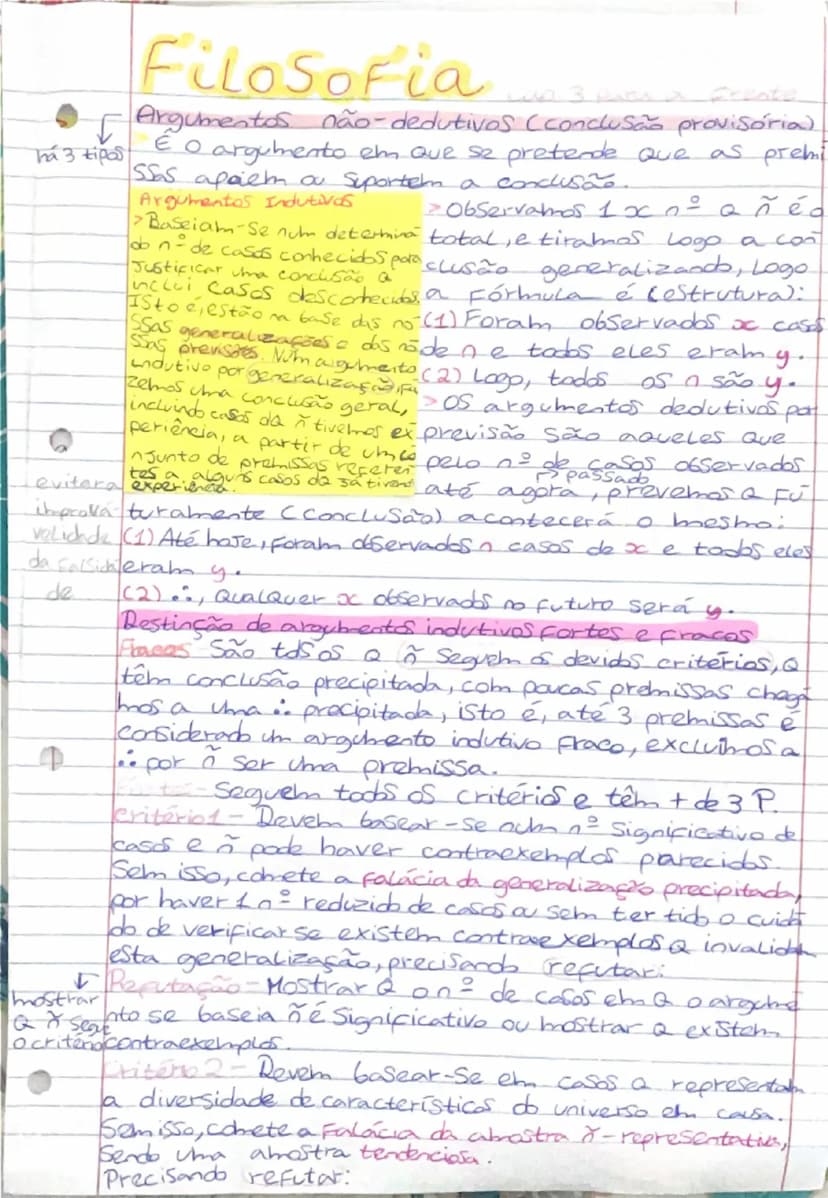 Filosofia
3 para a frente
Argumentos não-dedutivos (conclusão provisória)
há 3 tipos
É o argumento em que se pretende que as premi
ssas apoiem ou suportem a conclusão.
Argumentos Indutivos
> Baseiam-se num determina
do nº de casos conhecidos para
justificar uma conclusão q
inclui casos desconhecidos.
Isto é, estão na base das no
ssas generalizações e das no
ssas previsões. Num argumento
indutivo por generalização, fa
zemos uma conclusão geral,
incluindo casos dq ñ tivemos ex
periência, a partir de um co
njunto de premissas referen
tes a alguns casos dq já tivemos
experiência.
> Observamos 1 x nº q ñ é o
total, e tiramos logo a con
clusão generalizando, logo
a fórmula é (estrutura):
(1) Foram observados x casos
de n e todos eles eram y.
(2) Logo, todos os n são y.
> Os argumentos dedutivos por
previsão são aqueles que
pelo nº de casos observados
↳ passado
até agora, prevemos q fu
turamente (conclusão) acontecerá o mesmo:
(1) Até hoje, foram observados n casos de x e todos eles
eram y.
(2) ∴, qualquer x observado no futuro será y.
evitar a
improva
velidade
da falsida
de
Destinção de argumentos indutivos fortes e fracos
Fracos - São tds os q ñ seguem os devidos critérios, q
têm conclusão precipitada, com poucas premissas chega
mos a uma ∴ precipitada, isto é, até 3 premissas é
considerado um argumento indutivo fraco, excluímos a
∴ por ñ ser uma premissa.
Fortes - Seguem todos os critérios e têm + de 3 P.
Critério 1 - Devem basear-se num nº significativo de
casos e ñ pode haver contraexemplos parecidos.
Sem isso, comete a falácia da generalização precipitada,
por haver 1 nº reduzido de casos ou sem ter tido o cuida
do de verificar se existem contraexemplos q invalidam
esta generalização, precisando refutar:
Refutação - Mostrar q o nº de casos em q o argume
nto se baseia ñ é significativo ou mostrar q existem
contraexemplos.
mostrar
q ñ segue
o critério
Critério 2 - Devem basear-se em casos q representam
a diversidade de características do universo em causa.
Sem isso, comete a falácia da amostra ñ-representativa,
sendo uma amostra tendenciosa.
Precisando refutar: